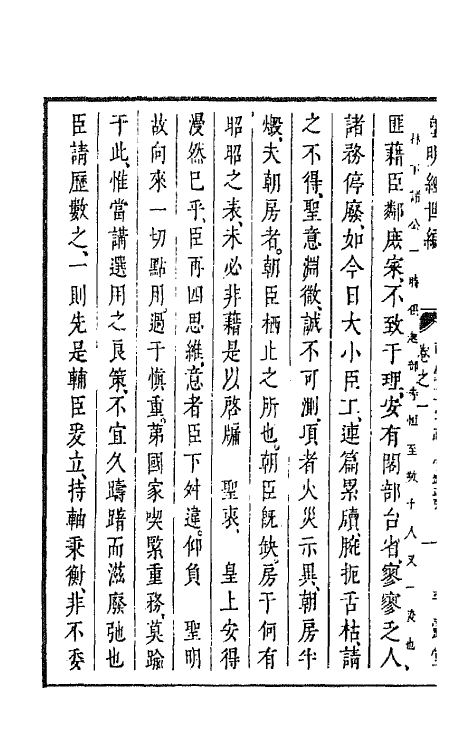 皇明經世編
卷之一
林下諸公一時俱起部寺恒至數十人又一変也
匪藉臣鄰庶寀、不致于理、安有閣部台省、寥寥乏人、
諸務停廢、如今日大小臣工、連篇累牘、腕扼舌枯、請
之不得、聖意淵微、誠不可測、項者火災示異、朝房半
燬、夫朝房者。朝臣栖止之所也。朝臣既缺。房于何有
昭昭之表、未必非藉是以啓牖　聖衷、　皇上安得
漫然已乎、臣再四思維、意者臣下舛違。仰負　聖明
故向來一切點用。過于慎重。第國家喫緊重務、莫踰
于此、惟當講選用之良策、不宜久躊躇而滋廢弛也
臣請歷數之、一則先是輔臣爰立、持軸秉衡、非不委